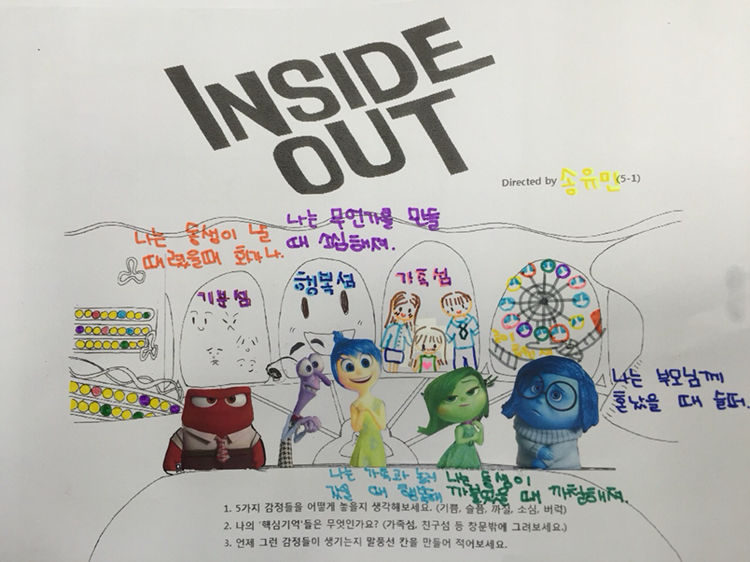 INSIDE
OUT
Directed by 송유민(5-1)
나는 동생이 날
때렸을때 화가나.
나는 무언가를 만들
때 소심해져.
기분섬
행복섬
가족섬
나는 부모님께
혼났을 때 슬퍼.
나는 가족과 놀러
갔을 때 행복해
나는 동생이
까불었을 때 까칠해져.
1. 5가지 감정들을 어떻게 놓을지 생각해보세요. (기쁨, 슬픔, 까칠, 소심, 버럭)
2. 나의 '핵심기억'들은 무엇인가요? (가족섬, 친구섬 등 창문밖에 그려보세요.)
3. 언제 그런 감정들이 생기는지 말풍선 칸을 만들어 적어보세요.